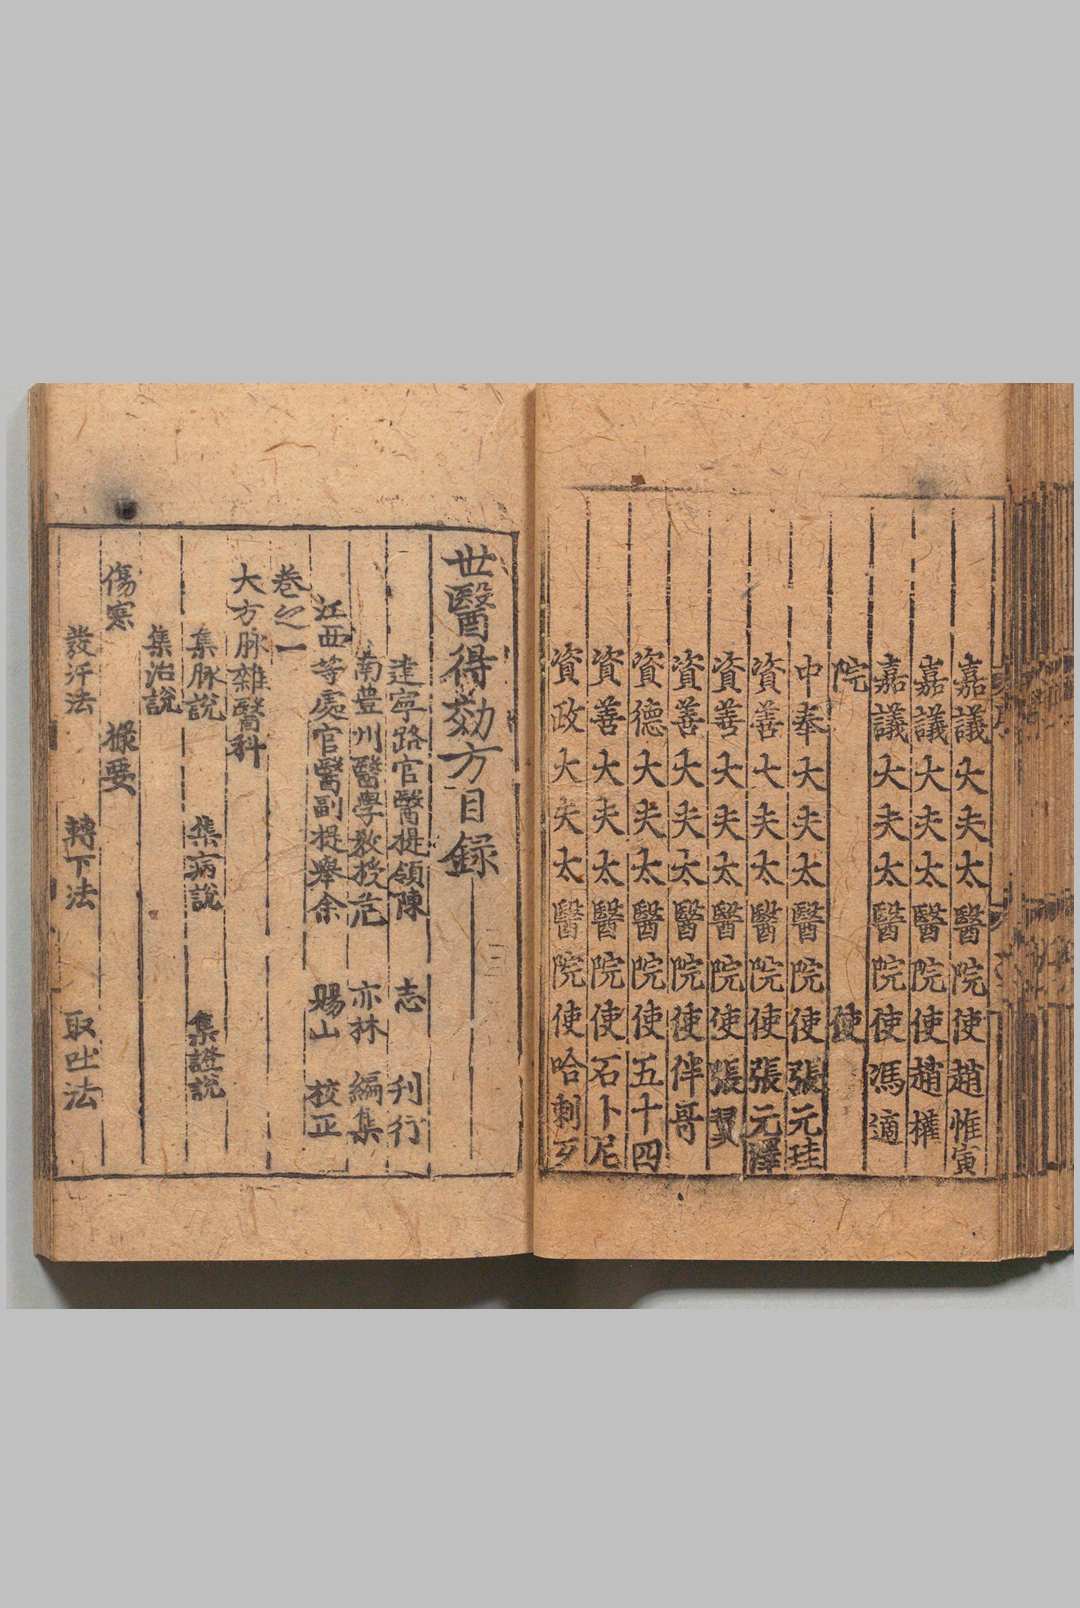 嘉議大夫太醫院使趙惟寅
嘉議大夫太醫院使趙權
嘉議大夫太醫院使馮適
院　　使
中奉大夫太醫院使張元珪
資善大夫太醫院使張元澤
資善大夫太醫院使張翼
資善大夫太醫院使伴哥
資德大夫太醫院使五十四
資善大夫太醫院使石卜尼
資政大夫太醫院使哈剌歹
世醫得効方目録
建寧路官醫提領陳　志　刊行
南豊州醫學教授危　亦林　編集
江西等處官醫副提舉余　賜山　校正
卷之一
大方脉雜醫科
集脉說　集病說　集證說
集治說
傷寒　撮要
發汗法　轉下法　取吐法